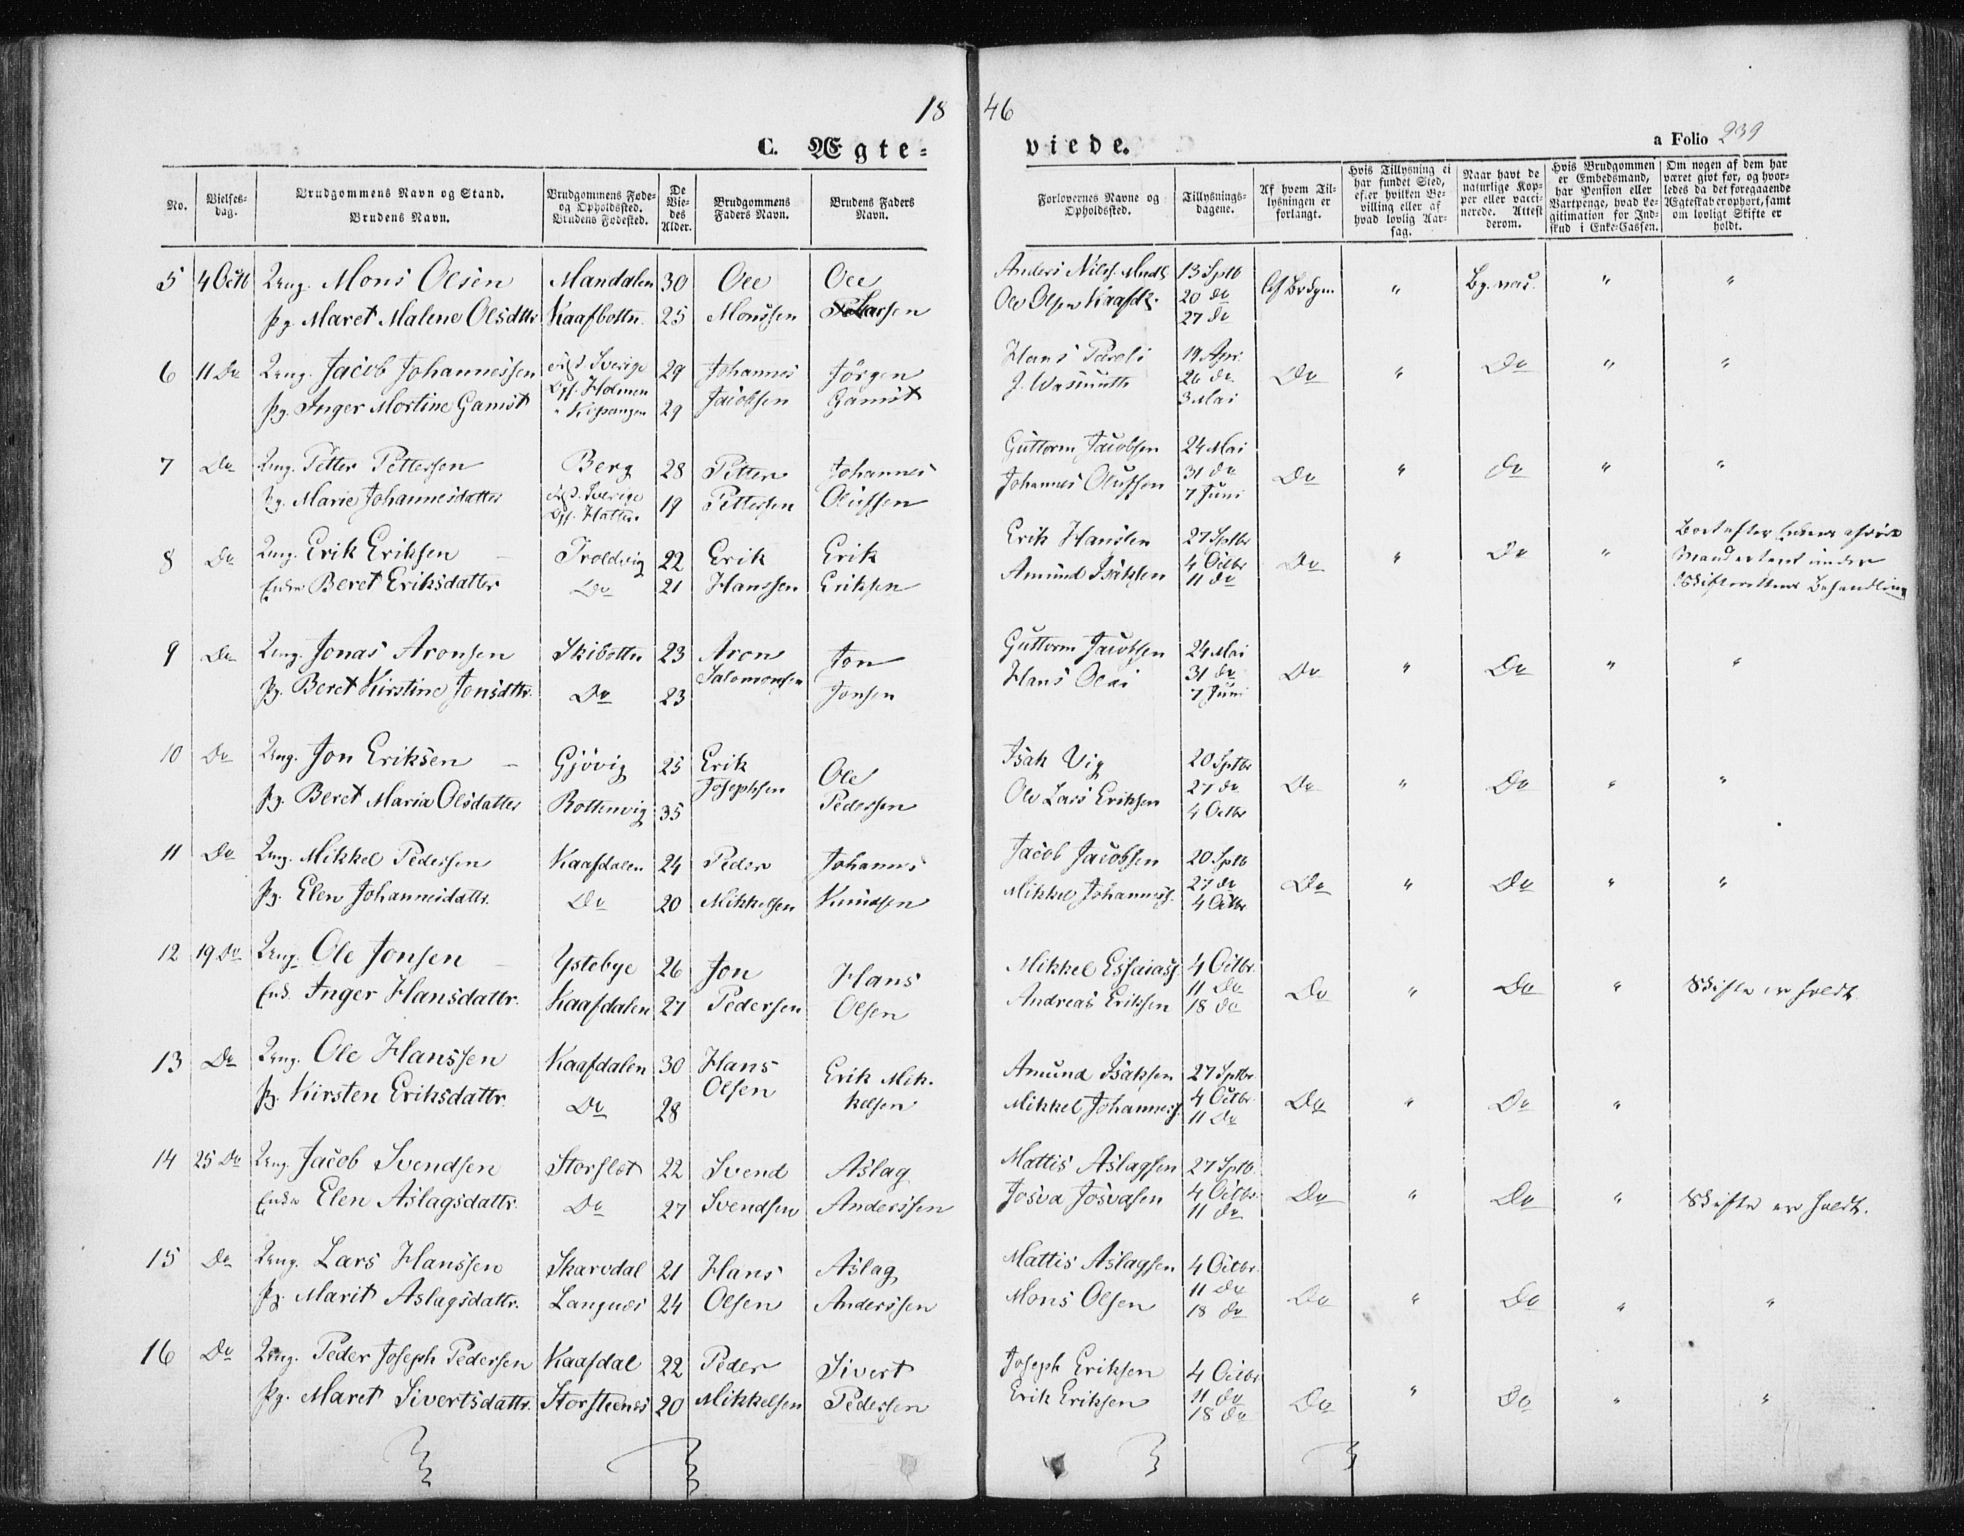 18 46
C. Ægte- viede. a Folio 239
No. Vielses-dag. Brudgommens Navn og Stand. Brudens Navn. Brudgommens Føde- og Opholdssted. Brudens Fødested. De Viedes Alder. Brudgommens Faders Navn. Brudens Faders Navn. Forlovernes Navne og Opholdssted. Tillysnings-dagene. Af hvem Tillysningen er forlangt. Hvis Tillysning ei har fundet Sted, efter hvilken Bevilling eller af hvad lovlig Aarsag. Naar havt de naturlige Kopper eller vaccinerede. Attest derom. Hvis Brudgommen er Embedsmand, har Pension eller Vartpenge, hvad Legitimation for Indskud i Enke-Cassen. Om nogen af dem har været givt før, og hvorledes da det foregaaende Ægteskab er ophørt, samt om lovligt Skifte er holdt.
5 4 Octb Ung. Mons Olsen Mandalen 30 Ole Ole Anders Nils. 13 Sptb Af Brdgm " Bg. vac. " "
Pg. Maret Malene Olsdttr Kaafbottn. 25 Monssen Larsen Ole Olsen Kaafd. 20 do
27 do
6 11 Do Ung. Jacob Johannessen Sverige 29 Johannes Jørgen Hans Paroli 19 Apr. Do " Do " "
Holmen J. Wasmuth 26 do
Pg. Inger Mortine Gamst Kipangen 29 Jacobsen Gamst 3 Mai
7 Do Ung. Petter Pettersen Berg 28 Petter Johannes Guttorm Jacobsen 24 Mai Do " do " "
Pg. Marie Johannesdatter Sverige Hatten 19 Pettersen Olufsen Johannes Olufsen 31 do
7 Juni
8 Do Ung. Erik Eriksen Troldvig 22 Erik Erik Erik Hansen 27 Sptbr Do " Do "
Enke Beret Eriksdatter Do 21 Hanssen Eriksen Amund Isaksen 4 Octbr
11 do under Skifterettens Behandling
9 Do Ung. Jonas Aronsen Skibottn 23 Aron Jon Guttorm Jacobsen 24 Mai Do " Do " "
Pg. Beret Kirstine Jensdttr. Do 23 Salomonsen Jonsen Hans Olai 31 do
7 Juni
10 Do Ung. Jon Eriksen Gjövig 25 Erik Ole Isak Vig 20 Sptbr Do " Do " "
Pg. Beret Maria Olsdatter Rottenvig 35 Josephsen Pedersen Ole Lars Eriksen 27 do
4 Octbr
11 Do Ung. Mikkel Pedersen Kaafdalen 24 Peder Johannes Jacob Jacobsen 20 Sptb Do " Do " "
Pg. Elen Johannesdattr. Do 20 Mikkelsen Knudsen Mikkel Johanness. 27 do
4 Octbr
12 19 Do Ung. Ole Jonsen Ystebye 26 Jon Hans Mikkel Esaiass. 4 Octbr. Do " Do " Skifte er holdt
Enke Inger Hansdattr. Kaafdalen 27 Pedersen Olsen Andreas Eriksen 11 Do
18 do
13 Do Ung. Ole Hanssen Kaafdalen 30 Hans Erik Mik- Amund Isaksen 27 Sptbr. Do " Do "
Pg. Kirsten Eriksdattr. Do 28 Olsen kelsen Mikkel Johanness. 4 Octbr.
11 Do
14 25 Do Ung. Jacob Svendsen Storslet 22 Svend Aslag Mattis Aslagsen 27 Sptb. Do " Do " Skifte er holdt.
Enke Elen Aslagsdattr. Do 27 Svendsen Anderssen Josva Josvasen 4 Octbr.
11 do
15 Do Ung. Lars Hanssen Skarvdal 21 Hans Aslag Mattis Aslagsen 4 Octbr. Do " Do " "
Pg. Marit Aslagsdattr. Langnæs 24 Olsen Anderssen Mons Olsen 11 do
18 do
16 Do Ung. Peder Joseph Pedersen Kaafdal 22 Peder Sivert Joseph Eriksen 4 Octbr Do " Do " "
Pg. Maret Sivertsdattr. Storsteenes 20 Mikkelsen Pedersen Erik Eriksen 11 do
18 do